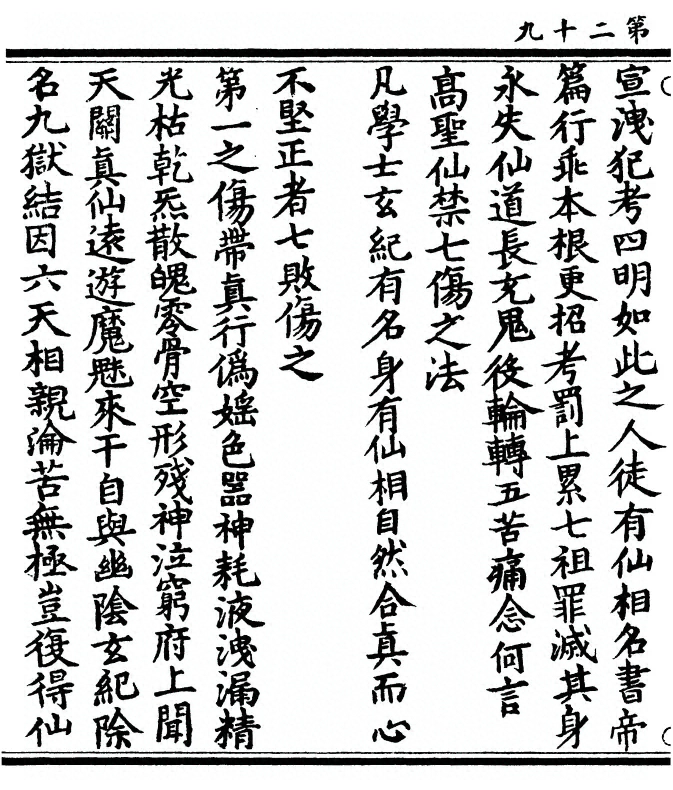 第二十九
宣洩犯考四明如此之人徒有仙相名書帝
篇行乖本根更招考罰上累七祖罪滅其身
永失仙道長充鬼役輪轉五苦痛念何言
高聖仙禁七傷之法
凡學士玄紀有名身有仙相自然合真而心
不堅正者七敗傷之
第一之傷帶真行偽婬色噐神耗液洩漏精
光枯乾炁散魄零骨空形殘神泣窮府上聞
天關真仙遠遊魔魅來干自與幽陰玄紀除
名九獄結因六天相親淪苦無極豈復得仙